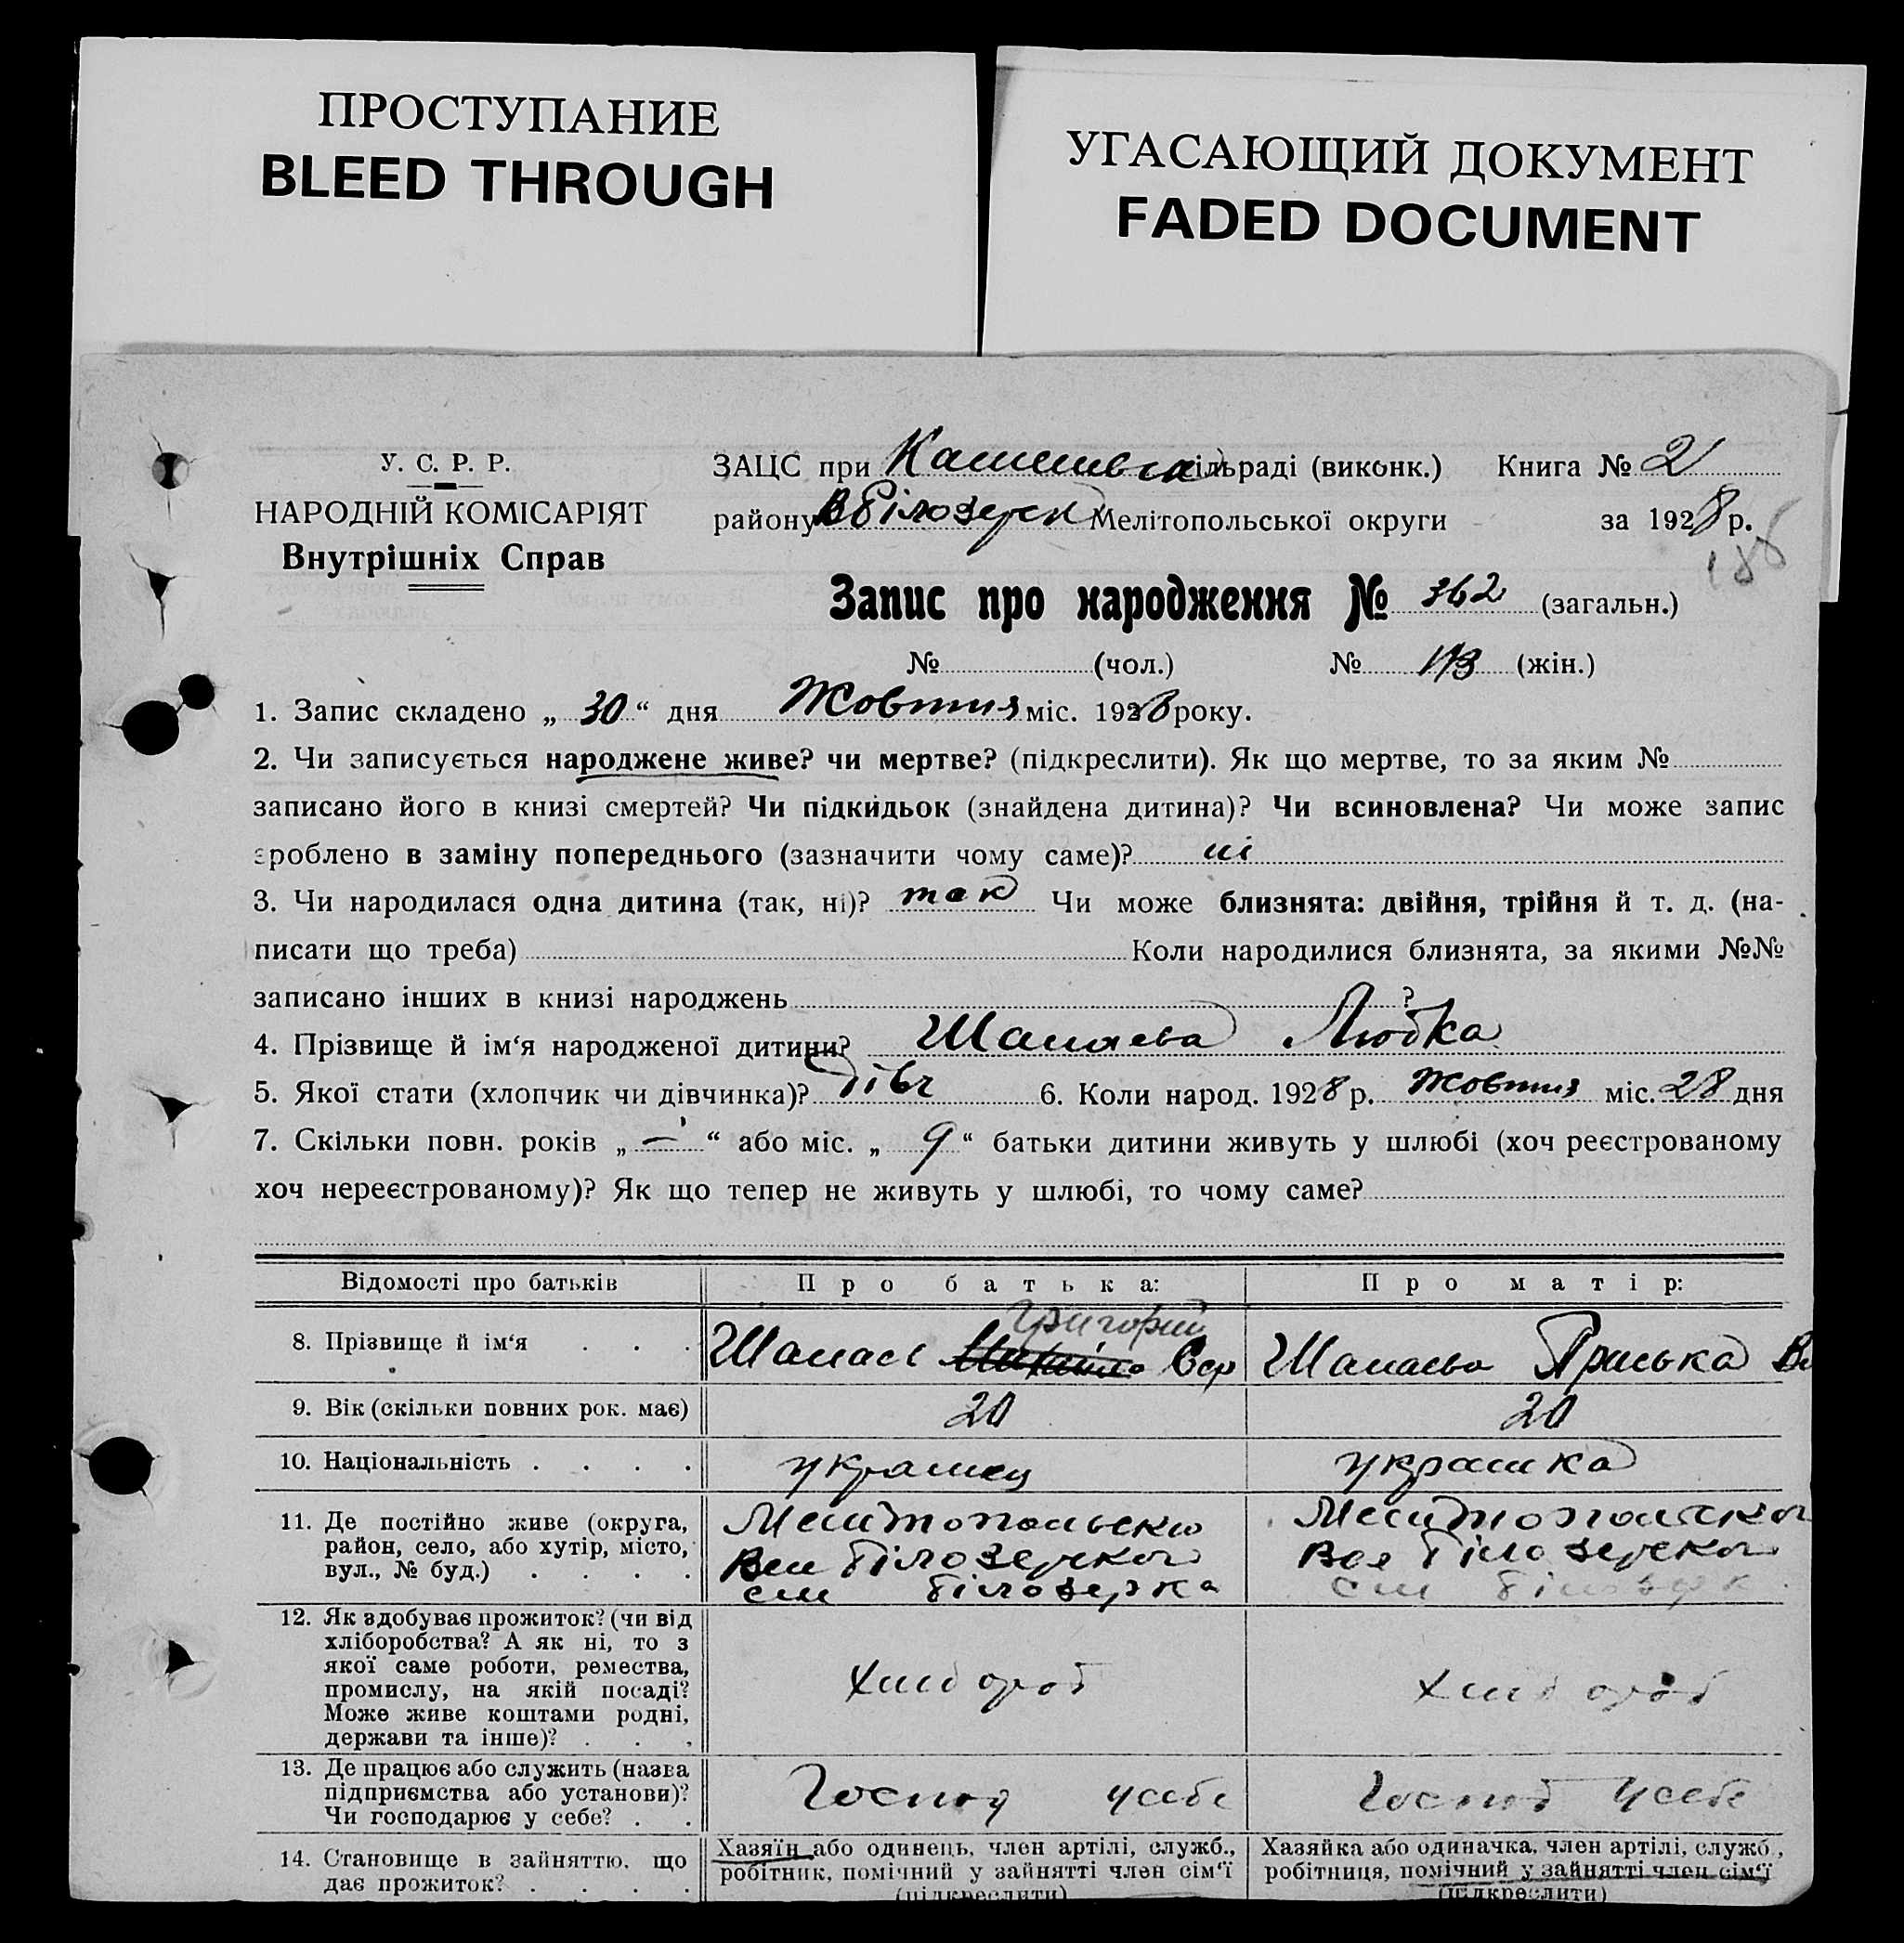 ПРОСТУПАНИЕ
BLEED THROUGH
УГАСАЮЩИЙ ДОКУМЕНТ
FADED DOCUMENT
У. С. Р. Р.
НАРОДНІЙ КОМІСАРІЯТ
Внутрішніх Справ
ЗАЦС при сільраді (виконк.) Книга № 2
району В Білозерк Мелітопольської округи за 1928 р.
186
Запис про народження № 362 (загальн.)
№ (чол.) № 173 (жін.)
1. Запис складено „ 30 “ дня Жовтня міс. 1928 року.
2. Чи записується народжене живе? чи мертве? (підкреслити). Як що мертве, то за яким №
записано його в книзі смертей? Чи підкидьок (знайдена дитина)? Чи всиновлена? Чи може запис
зроблено в заміну попереднього (зазначити чому саме)? ні
3. Чи народилася одна дитина (так, ні)? так Чи може близнята: двійня, трійня й т. д. (на-
писати що треба) Коли народилися близнята, за якими №№
записано інших в книзі народжень ?
4. Прізвище й ім‘я народженої дитини? Шапаєва Любка
5. Якої стати (хлопчик чи дівчинка)? дівч 6. Коли народ. 1928 р. Жовтня міс. 28 дня
7. Скільки повн. років „ — “ або міс. „ 9 “ батьки дитини живуть у шлюбі (хоч реєстрованому
хоч нереєстрованому)? Як що тепер не живуть у шлюбі, то чому саме?
Відомості про батьків Про батька: Про матір:
Григорий
8. Прізвище й ім‘я . . . Шапаєв Михайло Сер Шапаєва Пріська
9. Вік (скільки повних рок. має) 20 20
10. Національність . . . . украинец украинка
11. Де постійно живе (округа, Мелитопольско Мелитопольско
район, село, або хутір, місто, Вел Білозерског Вел Білозерског
вул., № буд.) . . . . сел Білозерка сел Білозерк
12. Як здобуває прожиток? (чи від
хліборобства? А як ні, то з
якої саме роботи, ремества, хлібороб хлібороб
промислу, на якій посаді?
Може живе коштами родні,
держави та інше)? . . .
13. Де працює або служить (назва
підприємства або установи)? Господ у себе Господ у себе
Чи господарює у себе? . .
14. Становище в зайняттю, що Хазяїн або одинець, член артілі, служб., Хазяйка або одиначка, член артілі, служб.,
дає прожиток? . . . . робітник, помічний у зайнятті член сім‘ї робітниця, помічний у зайнятті член сім‘ї
(підкреслити) (підкреслити)